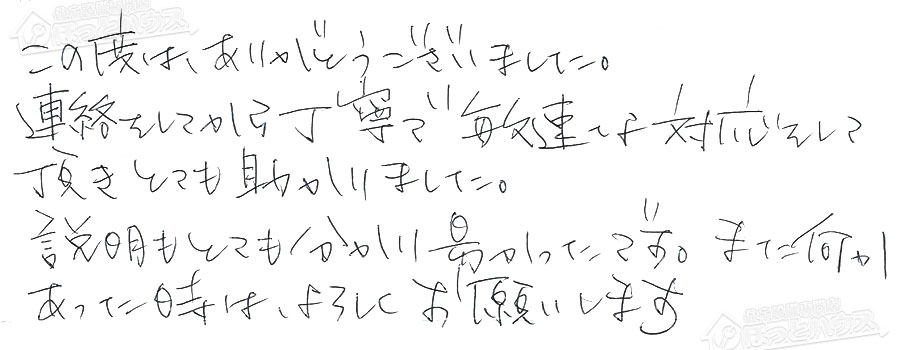 この度は、ありがとうございました。
連絡をしてから丁寧で敏速な対応をして
頂きとても助かりました。
説明もとても分かり易かったです。また何か
あった時は、よろしくお願いします
ほっとハウス
ほっとハウス